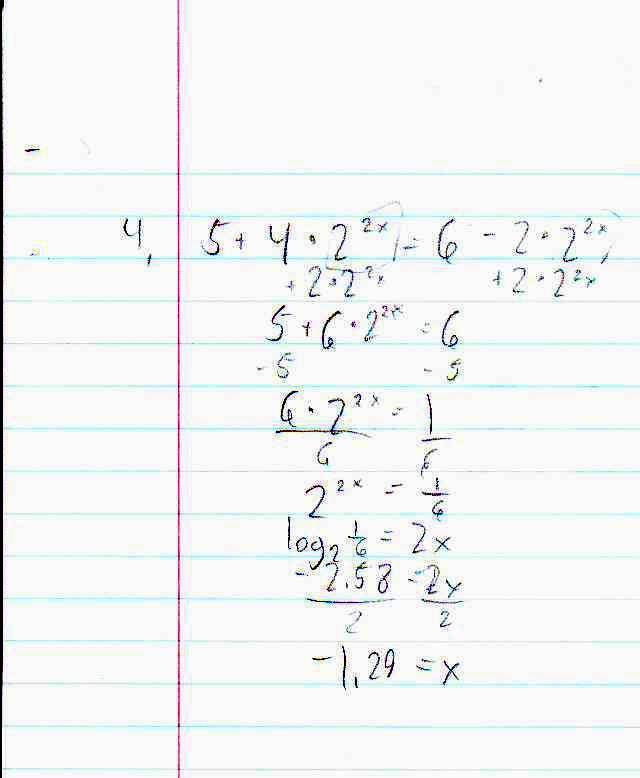 4, 5 + 4 · 2^2x = 6 - 2 · 2^2x
+ 2 · 2^2x + 2 · 2^2x
5 + 6 · 2^2x = 6
- 5 - 5
6 · 2^2x = 1
6 6
2^2x = 1/6
log_2 1/6 = 2x
- 2.58 = 2x
2 2
-1,29 = x